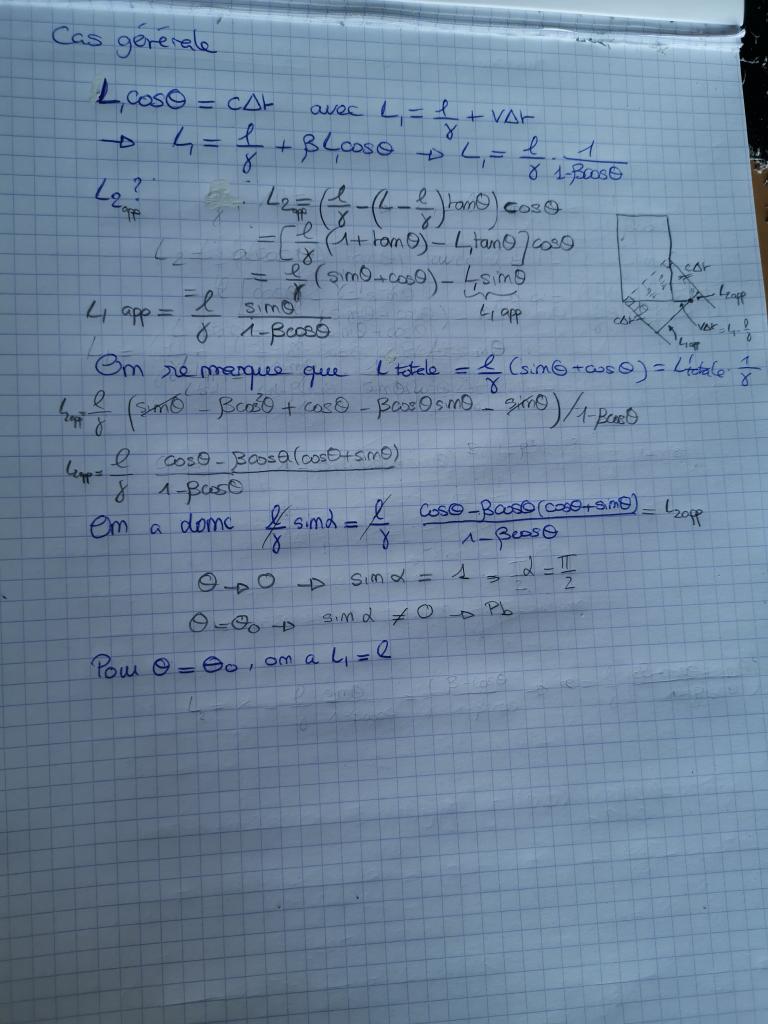 Cas générale
L₁cosθ = cΔt avec L₁ = l/γ + vΔt
→ L₁ = l/γ + βL₁cosθ → L₁ = l/γ · 1/(1-βcosθ)
L₂app ? L₂app = (l/γ - (L - l/γ)tanθ) cosθ
= [l/γ (1+tanθ) - L₁tanθ] cosθ
= l/γ (sinθ+cosθ) - L₁sinθ
L₁app
L₁ app = l/γ sinθ/(1-βcosθ)
cΔt
L₂app
cΔt
vΔt = L₁ - l/γ
L₁app
On remarque que L totale = l/γ (sinθ+cosθ) = L'totale · 1/γ
L₂app = l/γ (sinθ - βcos²θ + cosθ - βcosθsinθ - sinθ)/1-βcosθ
L₂app = l/γ (cosθ - βcosθ(cosθ+sinθ))/(1-βcosθ)
On a donc l/γ sinα = l/γ (cosθ-βcosθ(cosθ+sinθ))/(1-βcosθ) = L₂app
θ→0 → sinα = 1 → α = π/2
θ=θ₀ → sinα ≠ 0 → Pb
Pour θ = θ₀, on a L₁ = l